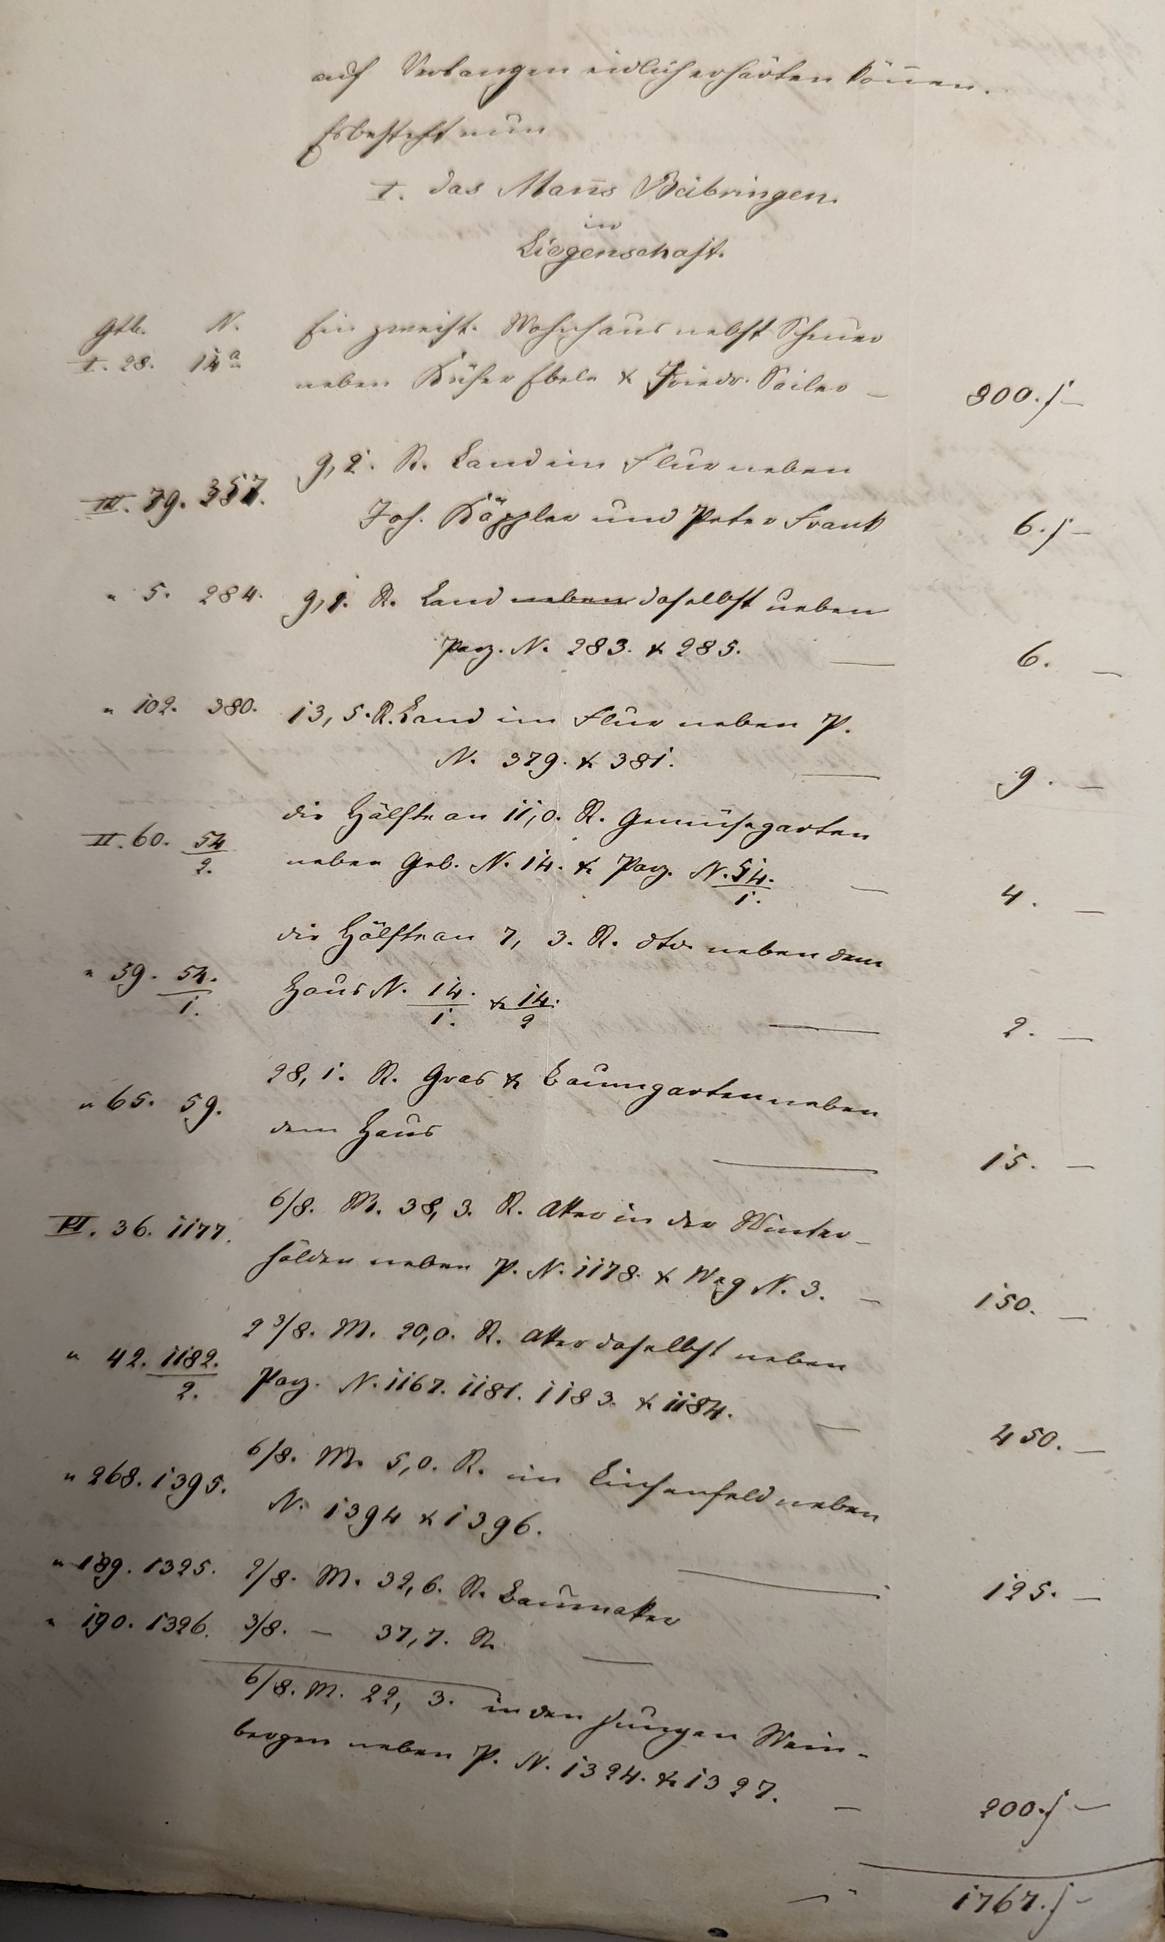 auf Verlangen eidlich erhärten können.
Es besteht nun
I. das Mans Beibringen.
in
Liegenschaft.
Gtb. N. Ein zweist. Wohnhaus nebst Scheuer
I. 28. 14a neben Küfer Ebele & Friedr. Sailer — 800. f —
III. 79. 357. 9,2. R. Land im Flur neben
Joh. Käppler und Peter Frank 6. f —
" 5. 284. 9,1. R. Land neben daselbst neben
Parz. N. 283. & 285. — 6. —
" 102. 380. 13,5. R. Land im Flur neben P.
N. 379. & 381. — 9. —
die Hälfte an 11,0. R. Gemüsegarten
II. 60. 54/2. neben Geb. N. 14. & Parz. N. 54./1. — 4. —
die Hälfte an 7,3. R. dto. neben dem
" 59. 54./1. Haus N. 14./1. & 14./2 — 2. —
28,1. R. Gras & Baumgarten neben
" 65. 59. dem Haus — 15. —
6/8. M. 38,3. R. Aker in der Winter-
VI. 36. 1177. halden neben P. N. 1178. & Weg N. 3. — 150. —
2 3/8. M. 20,0. R. Aker daselbst neben
" 42. 1182./2. Parz. N. 1167. 1181. 1183. & 1184. — 450. —
6/8. M. 5,0. R. im Eichenfeld neben
" 268. 1395. N. 1394 & 1396. — 125. —
" 189. 1325. 2/8. M. 32,6. R. Baumaker
" 190. 1326. 3/8. — 37,7. R. —
6/8. M. 22,3. in den jungen Wein-
bergen neben P. N. 1324. & 1327. — 200. f —
— " 1767. f —